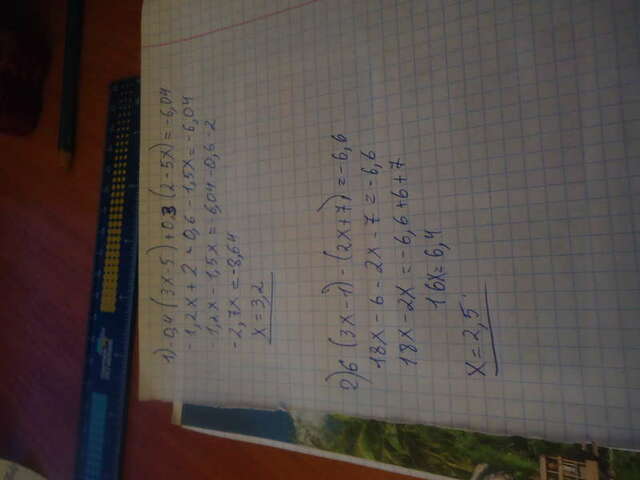 1) -0,4 (3x-5) +0.3 (2-5x) = -6,04
-1,2x + 2 + 0,6 - 1,5x = -6,04
-1,2x - 1,5x = -6,04 - 0,6 - 2
-2,7x = -8,64
x = 3,2
2) 6 (3x-1) - (2x+7) = -6,6
18x - 6 - 2x - 7 = -6,6
18x - 2x = -6,6 + 6 + 7
16x = 6,4
x = 2,5